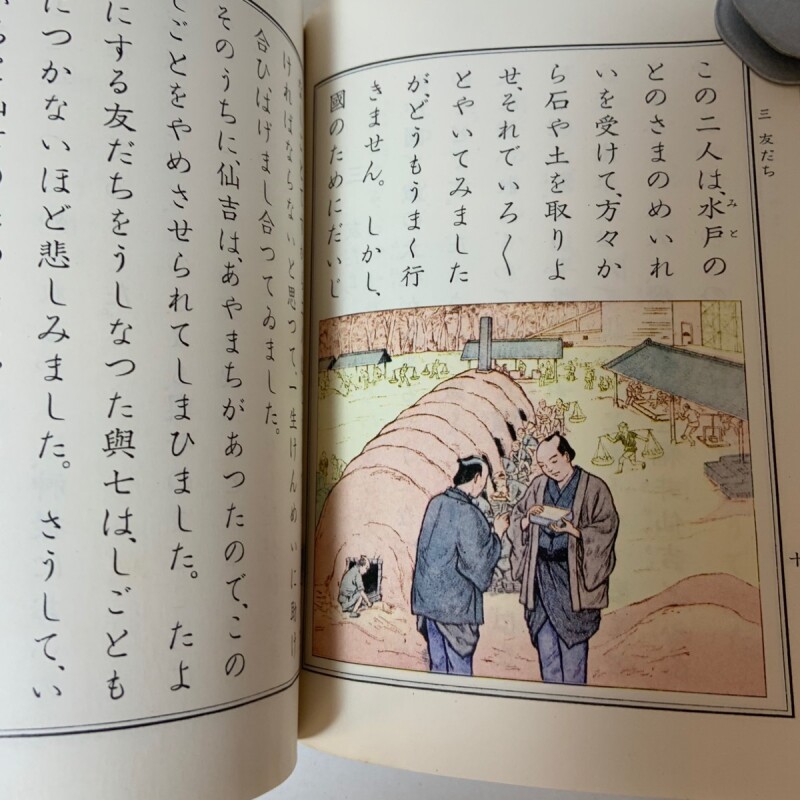 三 友だち
この二人は、水戸の
みと
とのさまのめいれ
いを受けて、方々か
ら石や土を取りよ
せ、それでいろ〳〵
とやいてみました
が、どうもうまく行
きません。 しかし、
國のためにだいじ
十
ければならないと思つて、一生けんめいに助け
合ひ、はげまし合つてゐました。
そのうちに、仙吉は、あやまちがあつたので、この
しごとをやめさせられてしまひました。 たよ
にする友だちをうしなつた與七は、しごとも
につかないほど悲しみました。 さうして、い